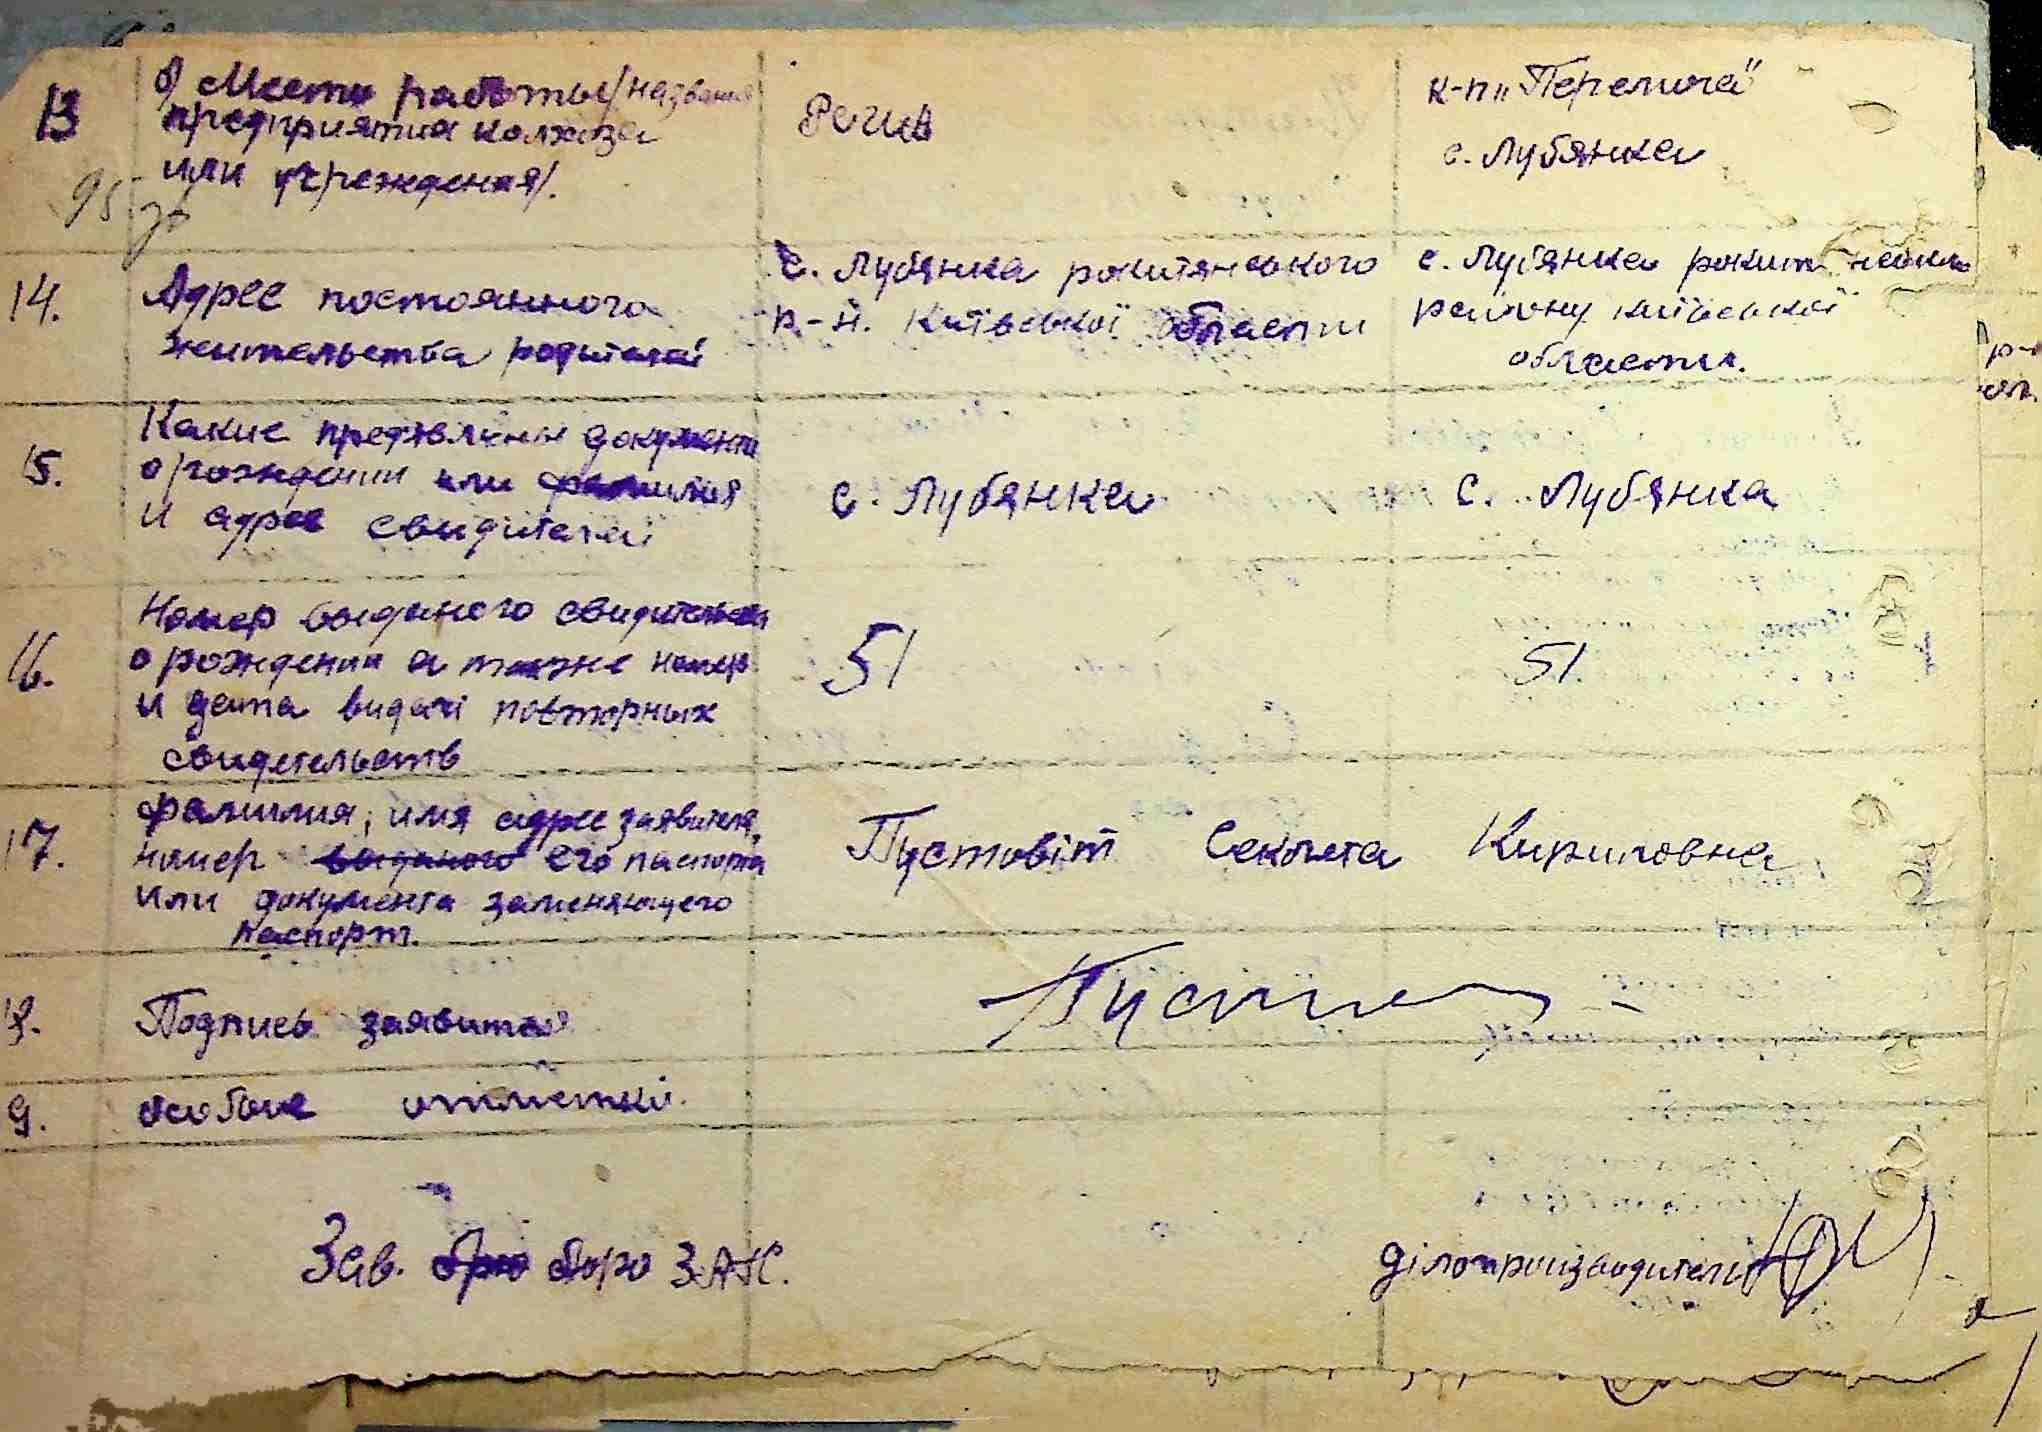 13
б) Место работы /название
предприятия колхоза
или учреждения/.
к-п „Перемога"
с. Лубянка
95
14.
Адрес постоянного
жительства родителей
с. Лубянка рокитянського
р-н. Київської области
с. Лубянка
району київської
области.
15.
Какие предявлены документы
о рождении или фамилия
и адрес свидителей
с. Лубянка
с. Лубянка
16.
Номер выданого свидительства
о рождении а также номер
и дата видачі повторных
свидетельств
51
51.
17.
Фамилия, имя адрес заявителя,
номер выданого его паспорта
или документа заменяющего
паспорт.
Пустовіт Секлета Кириловна
Подпись заявителя
9.
особые отметки.
Зав. бюро ЗАГС.
діло производитель